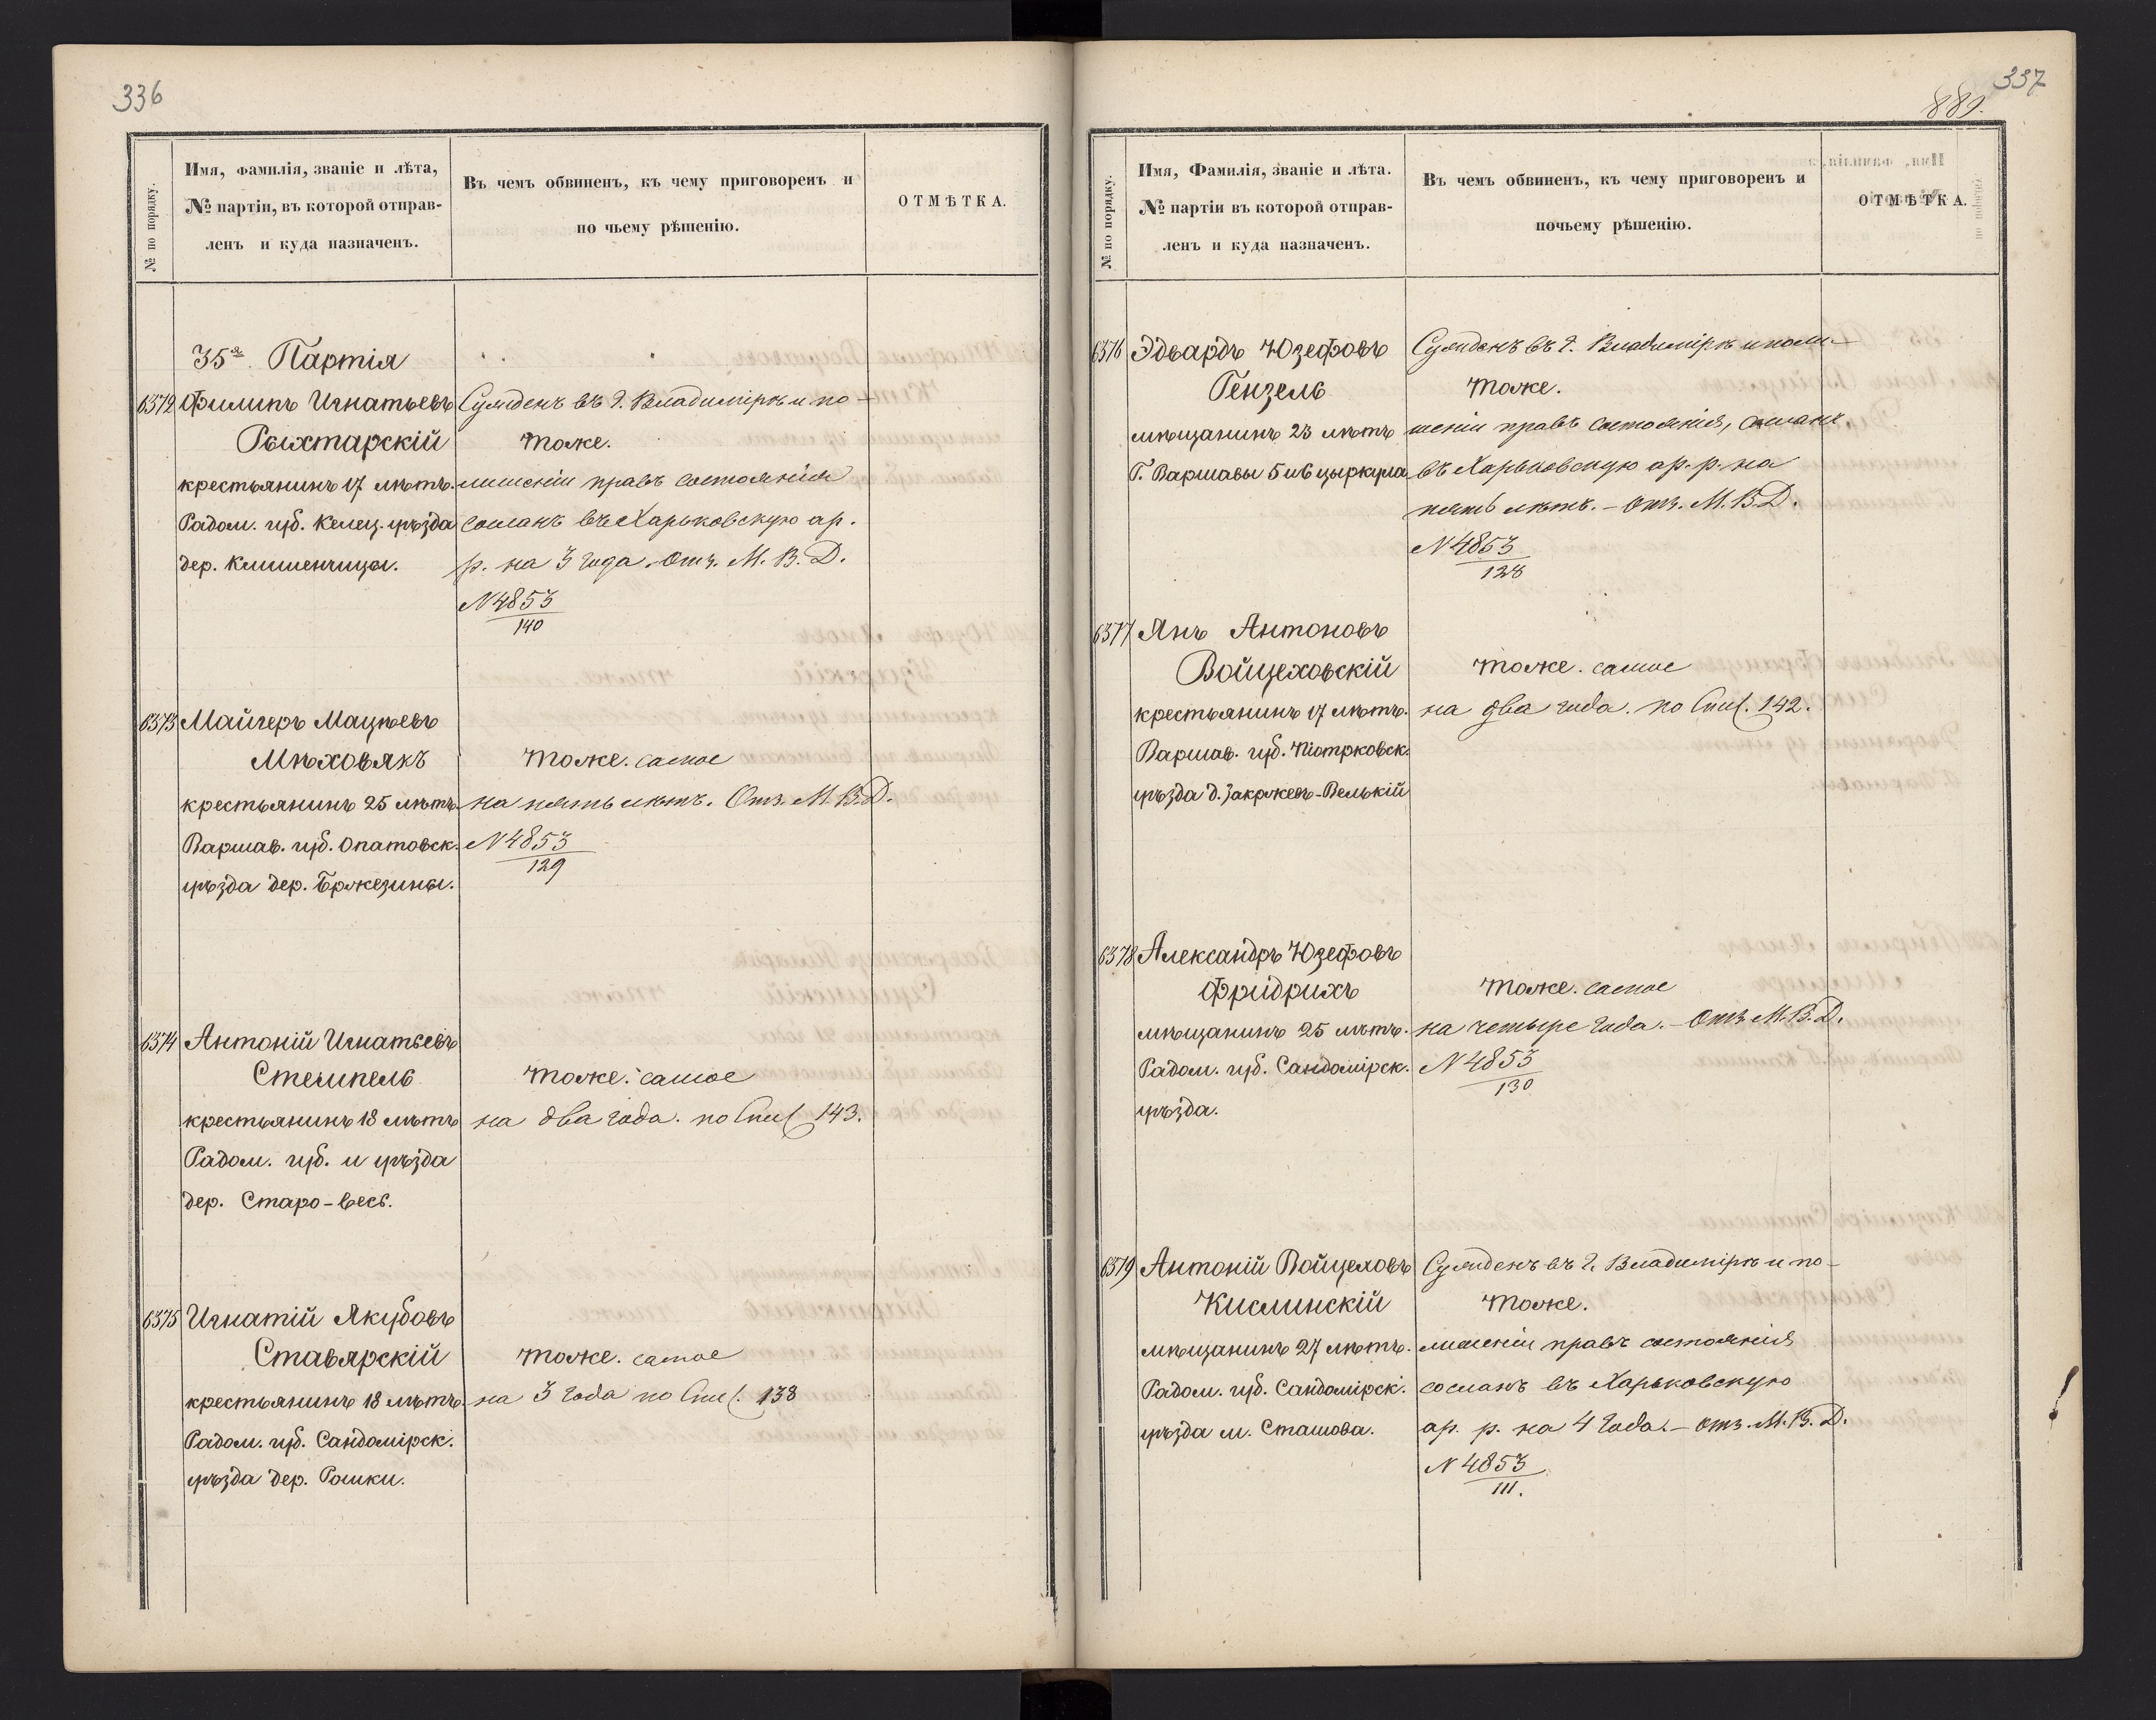 336
№ по порядку.
Имя, фамилія, званіе и лѣта,
№ партіи, въ которой отправ-
ленъ и куда назначенъ.
Въ чемъ обвиненъ, къ чему приговоренъ и
по чьему рѣшенію.
ОТМѢТКА.
35я Партія
6372 Филипъ Игнатьевъ
Рыхтарскій
крестьянинъ 17 лѣтъ.
Радом. губ. Келец. уѣзда
дер. Клишенчицы.
Сужденъ въ г. Владимірѣ и по
тоже.
лишеніи правъ состоянія
сосланъ въ Харьковскую ар.
р. на 3 года. Отз. М. В. Д.
N 4853
140
6373 Майгеръ Мацѣевъ
Мѣховякъ
крестьянинъ 25 лѣтъ
Варшав. губ. Опатовск.
уѣзда дер. Бржезины.
тоже. самое
на пять лѣтъ. Отз. М. В. Д.
N 4853
129
6374 Антоній Игнатьевъ
Стемпель
крестьянинъ 18 лѣтъ
Радом. губ. и уѣзда
дер. Старо-весь.
тоже. самое
на два года. по Спис 143.
6375 Игнатій Якубовъ
Ставярскій
крестьянинъ 18 лѣтъ.
Радом. губ. Сандомірск.
уѣзда дер. Рошки.
тоже. самое
на 3 года по Спис. 138
337
889.
№ по порядку.
Имя, Фамилія, званіе и лѣта.
№ партіи въ которой отправ-
ленъ и куда назначенъ.
Въ чемъ обвиненъ, къ чему приговоренъ и
почьему рѣшенію.
ОТМѢТКА.
6376 Эдвардъ Юзефовъ
Гензель
мѣщанинъ 23 лѣтъ
Г. Варшавы 5 и 6 цыркула
Сужденъ въ г. Владимірѣ и по ли-
тоже.
шеніи правъ состоянія, сосланъ
въ Харьковскую ар. р. на
пять лѣтъ. - Отз. М. В. Д.
N 4853
128
6377 Янъ Антоновъ
Войцеховскій
крестьянинъ 17 лѣтъ.
Варшав. губ. Піотрковск.
уѣзда д. Закржевъ-Велькій
тоже. самое
на два года. по Спис. 142.
6378 Александръ Юзефовъ
Фридрихъ
мѣщанинъ 25 лѣтъ.
Радом. губ. Сандомірск.
уѣзда.
тоже. самое
на четыре года. - Отз. М. В. Д.
N 4853
130
6379 Антоній Войцеховъ
Кислинскій
мѣщанинъ 27 лѣтъ.
Радом. губ. Сандомірск.
уѣзда м. Сташова.
Сужденъ въ г. Владимірѣ и по-
тоже.
лишеніи правъ состоянія
сосланъ въ Харьковскую
ар. р. на 4 года. - отз. М. В. Д.
N 4853
111.